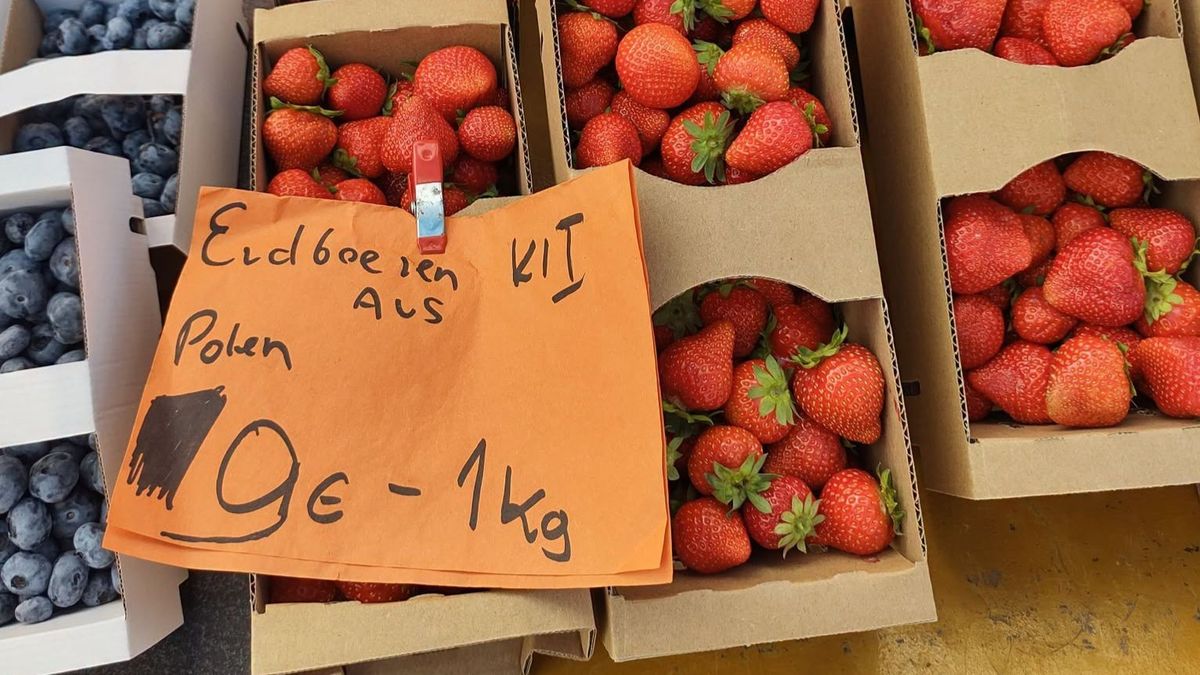 Erdbeeren KlI
Aus
Polen
9€ - 1kg